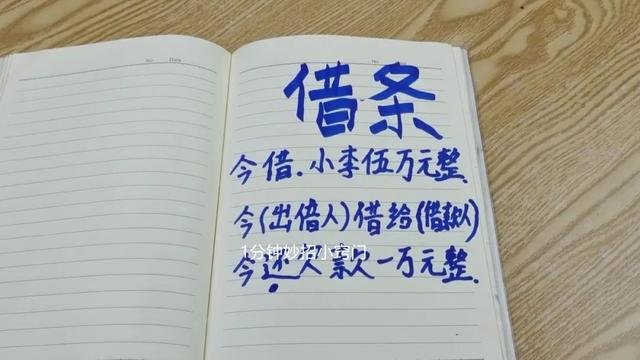 No Date
No
借条
今借.小李伍万元整.
今(出借人)借给(借款人)
1分钟妙招小窍门
今还欠款一万元整.